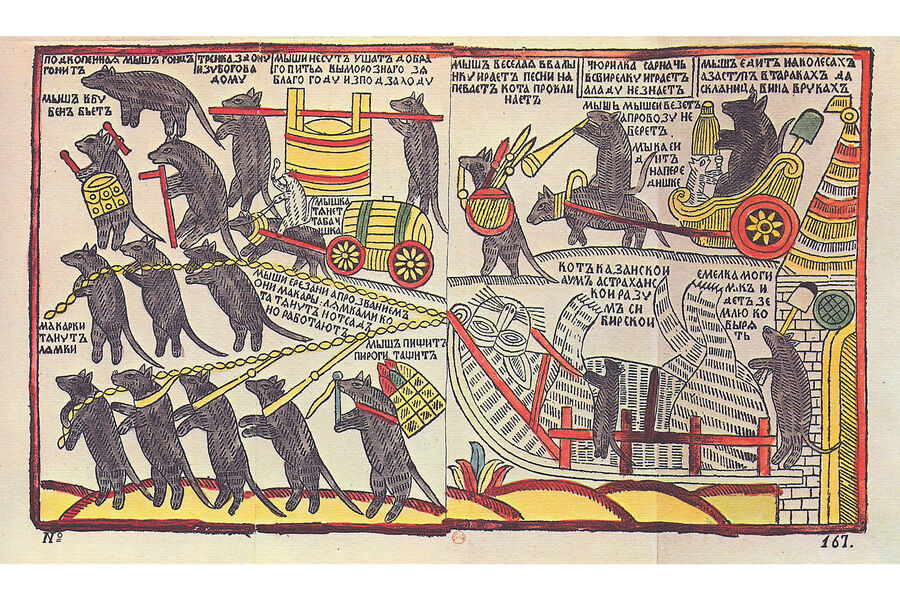 ПОДКОПЕННАЯ МЫШЬ ГОНЦЪ
ГОНИТЪ
ТРЕНКА З ДОНУ
ИЗУБОГОВА
ДОМУ
МЫШИ НЕСУТЪ УШАТЪ ДОБРА
ГО ПИТЬЯ ВЫМОРОЗНАГО ЗА
БЛАГО ГОДУ ИЗПОДЗАЛОДУ
МЫШЪ ВБУ
БЕНЪ БЬЕТЪ
МЫШКА
ТѦНЕТ
ТАБАЧ
ИШКА
МЫШИ ЕРЕЗАНИ АПРОЗВАНИЕМЪ
ОНИ МАКАРЫ ЛѦМКАМИ КО
ТА ТѦНУТЪ ИПОТСАДЪ
НО РАБОТАЮТЪ
МАКАРКИ
ТѦНУТЪ
ЛѦМКИ
МЫШЪ ПИЩИТЪ
ПИРОГИ ТАЩИТЪ
МЫШЬ ВЕСЕЛАЯ ВВАЛЫ
НКУ ИРАЕТЪ ПЕСНИ НА
ПЕВАЕТЪ КОТА ПРОКЛИ
НАЕТЪ
ЧЮРИЛКА САРНАЧЬ
ВСВИРЕЛКУ ИГРАЕТЪ
АЛАДУ НЕЗНАЕТЪ
МЫШЪ ЕДИТЪ НАКОЛЕСАХЪ
АЗАСТУПЪ ВТАРАКАХЪ ДА
СКЛАНИЦА ВИНА ВРУКАХЪ
МЫШЬ МЫШЕИ ВЕЗЕТЪ
АПРОВОЗУ НЕ
БЕРЕТЪ
МЫКА СИ
ДИТЪ
НАПЕРЕ
ДИШКЕ
КОТЪ КАЗАНСКОИ
АУМЪ АСТРАХАНЬ
СКОИ РАЗУ
МЪ СИ
БИРСКОИ
ЕМЕЛКА МОГИ
ЛѦКЪ И
ДЕТЪ ЗЕ
МЛЮ КО
ВЫРЯ
ТЬ
№
167.